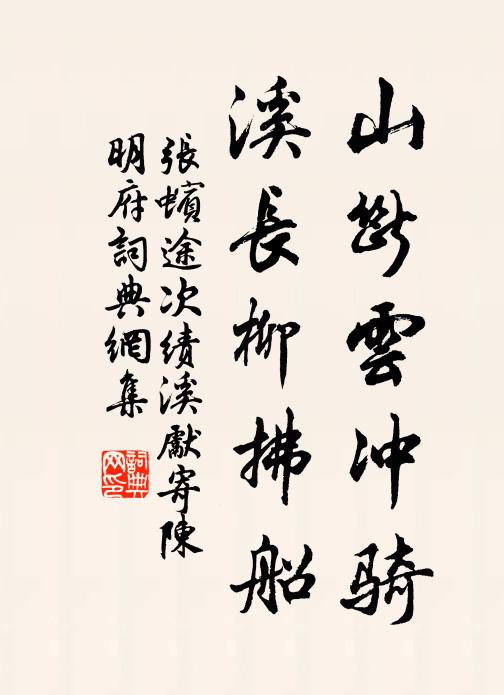 山斷雲冲騎
溪長柳拂船
張蠙途次績溪獻寄陳
明府詞典網集
詞典
网印